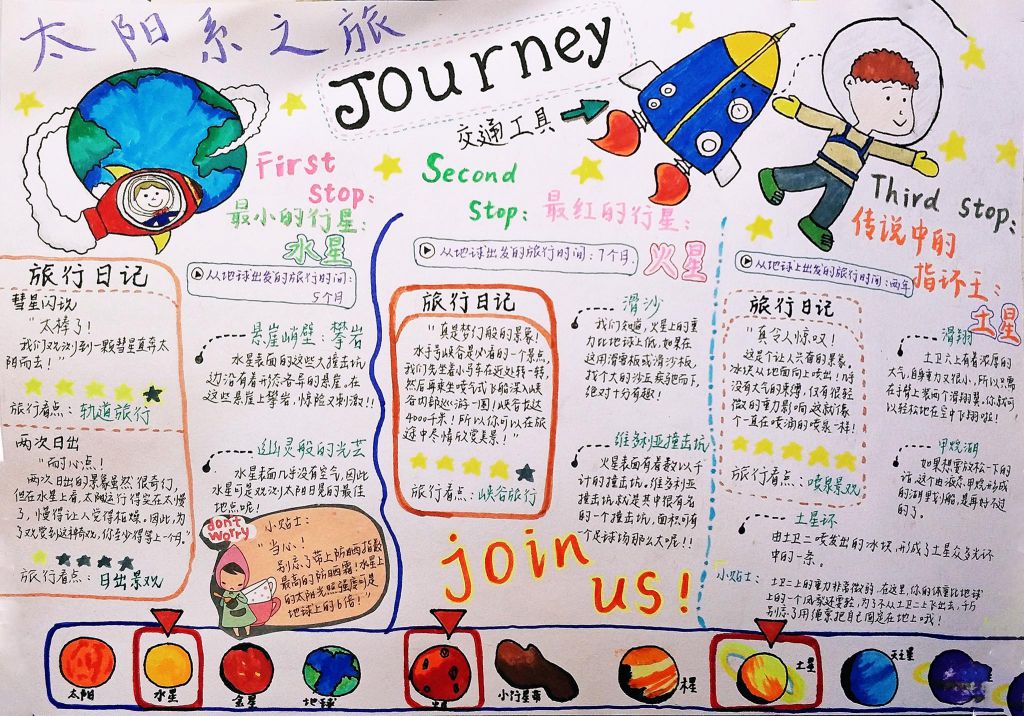 太阳系之旅
Journey
交通工具
First
Stop:
最小的行星:
水星
从地球出发的旅行时间:
5个月
旅行日记
彗星闪说
"太棒了!
我们观测到一颗彗星直奔太
阳而去!"
旅行看点: 轨道旅行
两次日出
"耐心点!
两次日出的景象虽然很奇幻,
但在水星上看,太阳运行得实在太慢
了,慢得让人觉得枯燥。因此,为
了观赏到这种奇观,你至少得等上一个月。"
旅行看点: 日出景观
悬崖峭壁: 攀岩
水星表面的这些大撞击坑,
边沿有着形态各异的悬崖,在
这些悬崖上攀岩,惊险又刺激!!
幽灵般的光芒
水星表面几乎没有空气,因此
水星可是观测太阳日冕的最佳
地点呢!
don't
worry
小贴士:
"当心!
别忘了带上防晒指数
最高的防晒霜!水星上
的太阳光照强度可是
地球上的6倍!"
Second
Stop: 最红的行星:
火星
从地球出发的旅行时间:7个月.
旅行日记
"真是梦幻般的景象!
水手号峡谷是必看的一个景点,
我们先坐着小马车在近处转一转,
然后再乘坐喷气式飞船深入峡
谷内部巡游一圈!峡谷长达
4000千米!所以你可以在旅
途中尽情欣赏美景!"
旅行看点: 峡谷旅行
滑沙
我们知道,火星上的重
力比地球上低,如果在
这用滑雪板或滑沙板,
找个大的沙丘疾驰而下,
绝对十分有趣!
维多利亚撞击坑
火星表面有着数以千
计的撞击坑,维多利亚
撞击坑就是其中很有名
的一个撞击坑,面积可有
一个足球场那么大呢!!
join
us!
Third Stop:
传说中的
指环王:
土星
从地球上出发的旅行时间:两年
旅行日记
"真令人惊叹!
这是个让人兴奋的景象,
冰块从地面向上喷出!好
没有大气的束缚,仅有很轻
微的重力影响,这就像
个一直在喷涌的喷泉一样!
旅行看点: 喷泉景观
滑翔
土卫六上有着浓厚的
大气,自身重力又很小,所以只需
在手臂上装两个滑翔翼,你就可
以轻松地在空中飞翔啦!
甲烷湖
如果想要放松一下的
话,这个由液态甲烷形成
的湖里划船,是再好不过
的了。
土星环
由土卫二喷发出的冰块,形成了土星众多光环
中的一条。
小贴士: 土卫二上的重力非常微弱,在这里,你的体重比地球
上的一个风筝还要轻,为了不从土卫二上飞出去,千万
别忘了用绳索把自己固定在地上哦!
太阳
水星
金星
地球
小行星带
木星
土星
天王星